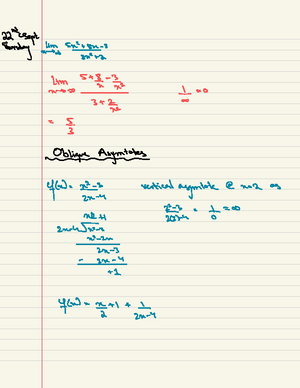 22nd Sept
Sunday
lim x→∞ 5x²+8x-3 / 3x²+2
lim x→∞ 5 + 8/x - 3/x² / 3 + 2/x²
1/∞ = 0
= 5/3
Oblique Asymtotes
f(x) = x²-3 / 2x-4
vertical asymtote @ x=2 as
x²-3
1/0 = ∞
x²-3
x²-2x
2x-3
- 2x-4
+1
f(x) = x/2 + 1 + 1/2x-4